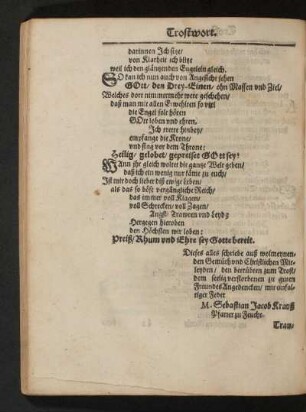 Trostwort.
darinnen Ich sitze/
von Klarheit ich blitz
weil ich den gläntzenden Engelein gleich.
SO kan ich nun auch von Angesicht sehen
GOtt/ den Drey-Einen/ ohn Massen und Ziel/
Welches dort nun nunmehr wert geschehen/
daß man mit allen Erwehlten so viel
die Engel hilt hören
GOtt loben und ehren.
Ich trette hinbey/
empfange die Krone/
und sing vor dem Throne:
Heilig/ gelobet/ gepreiset GOtt sey!
WAnn ihr gleich woltet die gantze Welt geben/
daß ich ein wenig nur käme zu euch/
Ist mir doch lieber diß ewige Leben/
als das so böse vergängliche Reich/
das immer voll Klagen/
voll Schrecken/ voll Zagen/
Angst/ Trawren und Leyd:
Hergegen hieroben
den Höchsten wir loben:
Preiß/ Rhum und Ehre sey Gotte bereit.
Dieses alles schriebe auß wolmeynen-
den Gemüth und Christlichen Mit-
leyden/ den betrübten zum Trost/
dem seelig verstorbenen zu gutem
Freundes Angedencken/ mit einfäl-
tiger Feder
M. Sebastian Jacob Krauß
Pfarrer zu Feucht.
Trau,